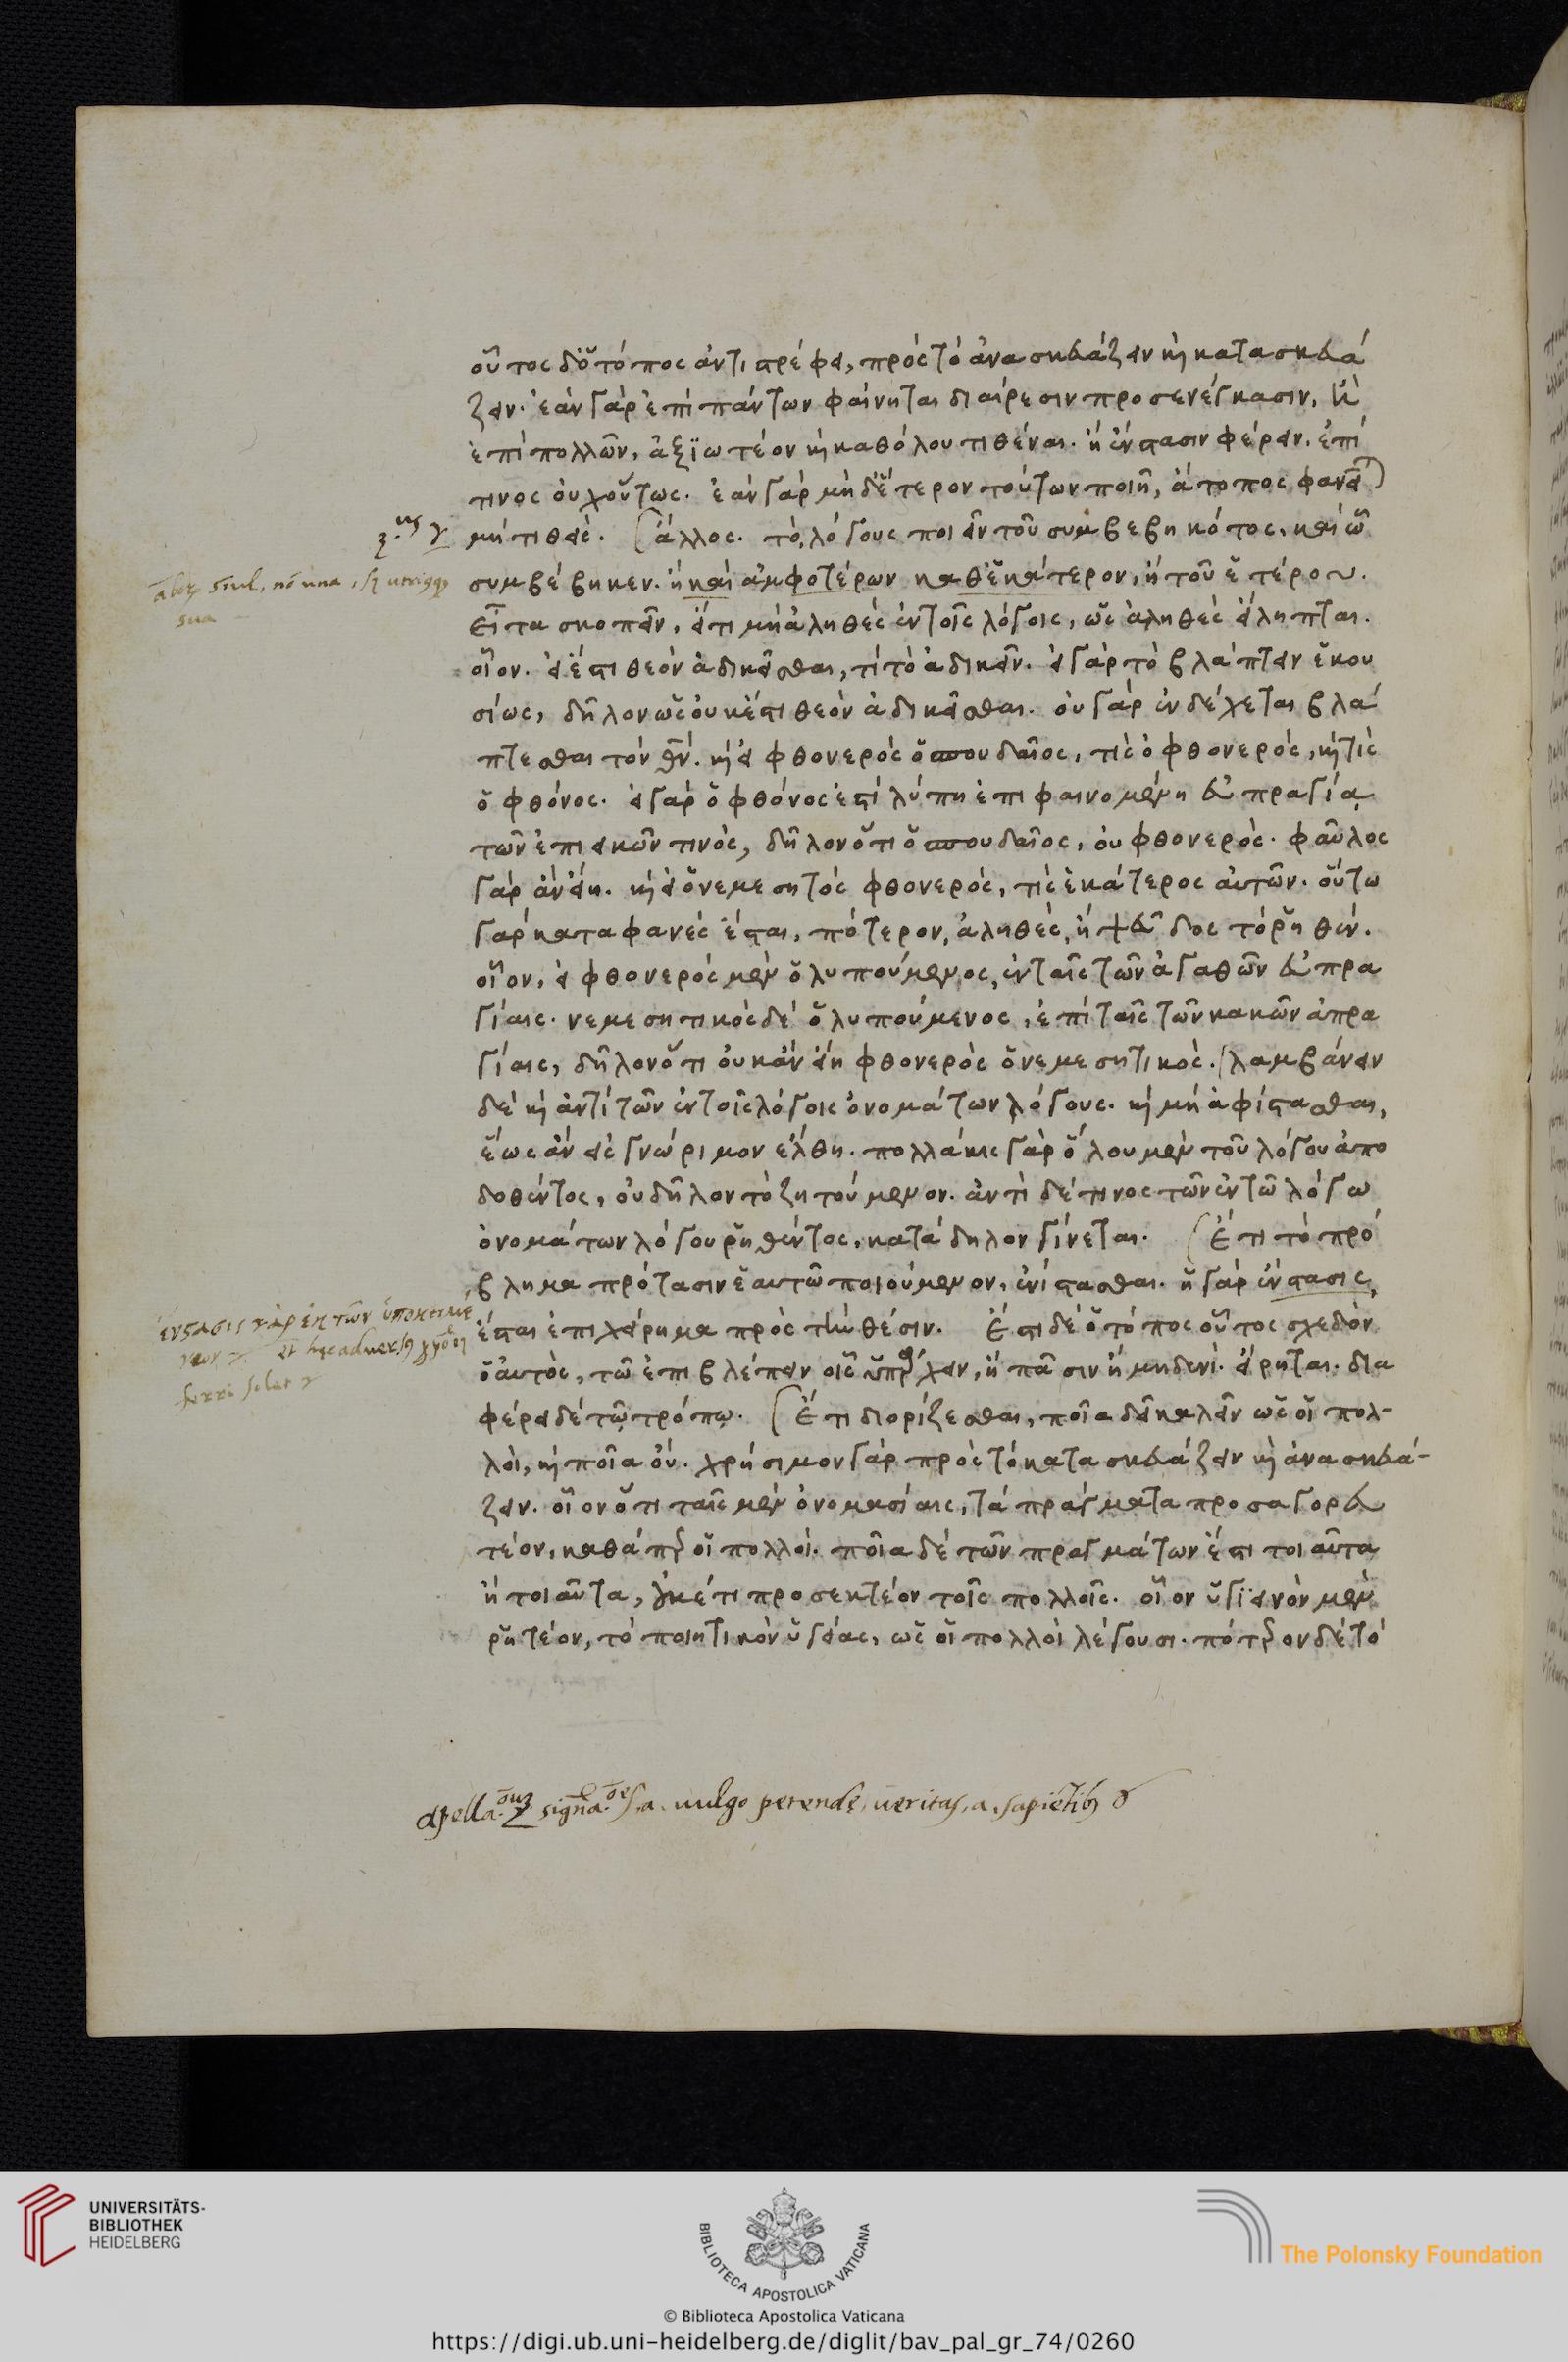 οὗτος δ' ὁ τόπος ἀντιστρέφει, πρὸς τὸ ἀνασκευάζειν καὶ κατασκευά
ζειν. ἐὰν γὰρ ἐπὶ πάντων φαίνηται διαίρεσιν προσενέγκασιν, ἢ
ἐπὶ πολλῶν, ἀξϊωτέον καὶ καθόλου τιθέναι. ἢ ἔνστασιν φέρειν. ἐπί
τινος οὐχ οὕτως. ἐὰν γὰρ μηδ' ἕτερον τούτων ποιῇ, ἄτοπος φανεῖται
μὴ τιθείς. ἄλλος. τὸ, λόγους ποιεῖν τοῦ συμβεβηκότος, καὶ ᾧ
συμβέβηκεν. ἢ καὶ ἀμφοτέρων καθ' ἑκάτερον, ἢ τοῦ ἑτέρου.
εἶτα σκοπεῖν, εἴ τι μὴ ἀληθὲς ἐν τοῖς λόγοις, ὡς ἀληθὲς εἴληπται.
οἷον. εἰ ἔστι θεὸν ἀδικεῖσθαι, τί τὸ ἀδικεῖν. εἰ γὰρ τὸ βλάπτειν ἑκου
σίως, δῆλον ὡς οὐκ ἔστι θεὸν ἀδικεῖσθαι. οὐ γὰρ ἐνδέχεται βλά
πτεσθαι τὸν θν. καὶ εἰ φθονερὸς ὁ σπουδαῖος, τίς ὁ φθονερός, καὶ τίς
ὁ φθόνος. εἰ γὰρ ὁ φθόνος ἐστὶ λύπη ἐπι φαινομένη εὐπραγίᾳ
τῶν ἐπιεικῶν τινός, δῆλον ὅτι ὁ σπουδαῖος, οὐ φθονερὸς. φαῦλος
γὰρ ἂν εἴη. καὶ εἰ ὁ νεμεσητὸς φθονερός, τίς ἑκάτερος αὐτῶν. οὕτω
γὰρ καταφανὲς ἔσται, πότερον, ἀληθὲς, ἢ ψεῦδος τὸ ῥηθέν.
οἷον, εἰ φθονερὸς μὲν ὁ λυπούμενος, ἐν ταῖς τῶν ἀγαθῶν εὐπρα
γίαις. νεμεσητικὸς δὲ ὁ λυπούμενος, ἐπὶ ταῖς τῶν κακῶν εὐπρα
γίαις, δῆλον ὅτι οὐκ ἂν εἴη φθονερὸς ὁ νεμεσητικός. λαμβάνειν
δὲ καὶ ἀντὶ τῶν ἐν τοῖς λόγοις ὀνομάτων λόγους. καὶ μὴ ἀφίστασθαι,
ἕως ἂν εἰς γνώριμον ἔλθῃ. πολλάκις γὰρ ὅλου μὲν τοῦ λόγου ἀπο
δοθέντος, οὐ δῆλον τὸ ζητούμενον. ἀντὶ δέ τινος τῶν ἐν τῶ λόγω
ὀνομάτων λόγου ῥηθέντος, κατάδηλον γίνεται. Ἔτι τὸ πρό
βλημα πρότασιν ἑαυτῶ ποιούμενον, ἐνίστασθαι. ἡ γὰρ ἔνστασις,
ἔσται ἐπιχείρημα πρὸς τὴν θέσιν. Ἔστι δὲ ὁ τόπος οὗτος σχεδὸν
ὁ αὐτὸς, τῶ ἐπιβλέπειν οἷς ὑπάρχειν, ἢ πᾶσιν ἢ μηδενὶ εἴρηται. δια
φέρει δὲ τῷ τρόπῳ. Ἔτι διορίζεσθαι, ποῖα δεῖ καλεῖν ὡς οἱ πολ-
λοὶ, καὶ ποῖα οὔ. χρήσιμον γὰρ πρὸς τὸ κατασκευάζειν καὶ ἀνασκευά-
ζειν. οἷον ὅτι ταῖς μὲν ὀνομασίαις, τὰ πράγματα προσαγορευ
τέον, καθάπερ οἱ πολλοί. ποῖα δὲ τῶν πραγμάτων ἔστι τοιαῦτα
ἢ τοιαῦτα, οὐκέτι προσεκτέον τοῖς πολλοῖς. οἷον ὑγιεινὸν μὲν
ῥητέον, τὸ ποιητικὸν ὑγείας, ὡς οἱ πολλοὶ λέγουσι. πότερον δὲ τὸ
sua
ἔνστασις γὰρ ἐκ τῶν ὑποκειμέ
νων
ferri solet
vulgo petende, veritas, a. sapietib
UNIVERSITÄTS-
BIBLIOTHEK
HEIDELBERG
BIBLIOTECA APOSTOLICA VATICANA
The Polonsky Foundation
© Biblioteca Apostolica Vaticana
https://digi.ub.uni-heidelberg.de/diglit/bav_pal_gr_74/0260